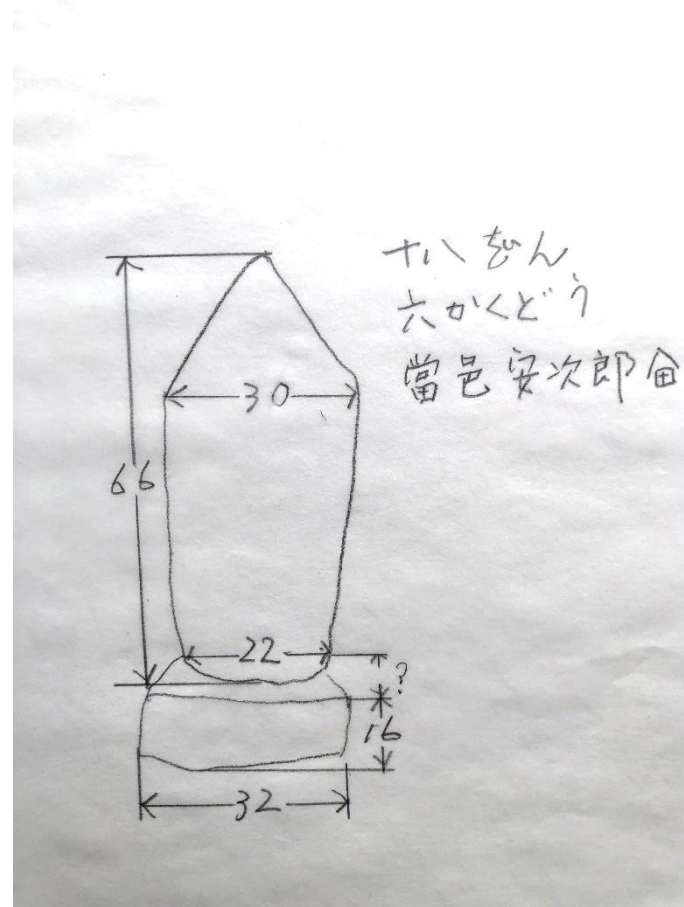 十八ばん
六かくどう
當邑安次郎
66
30
22
?
16
32